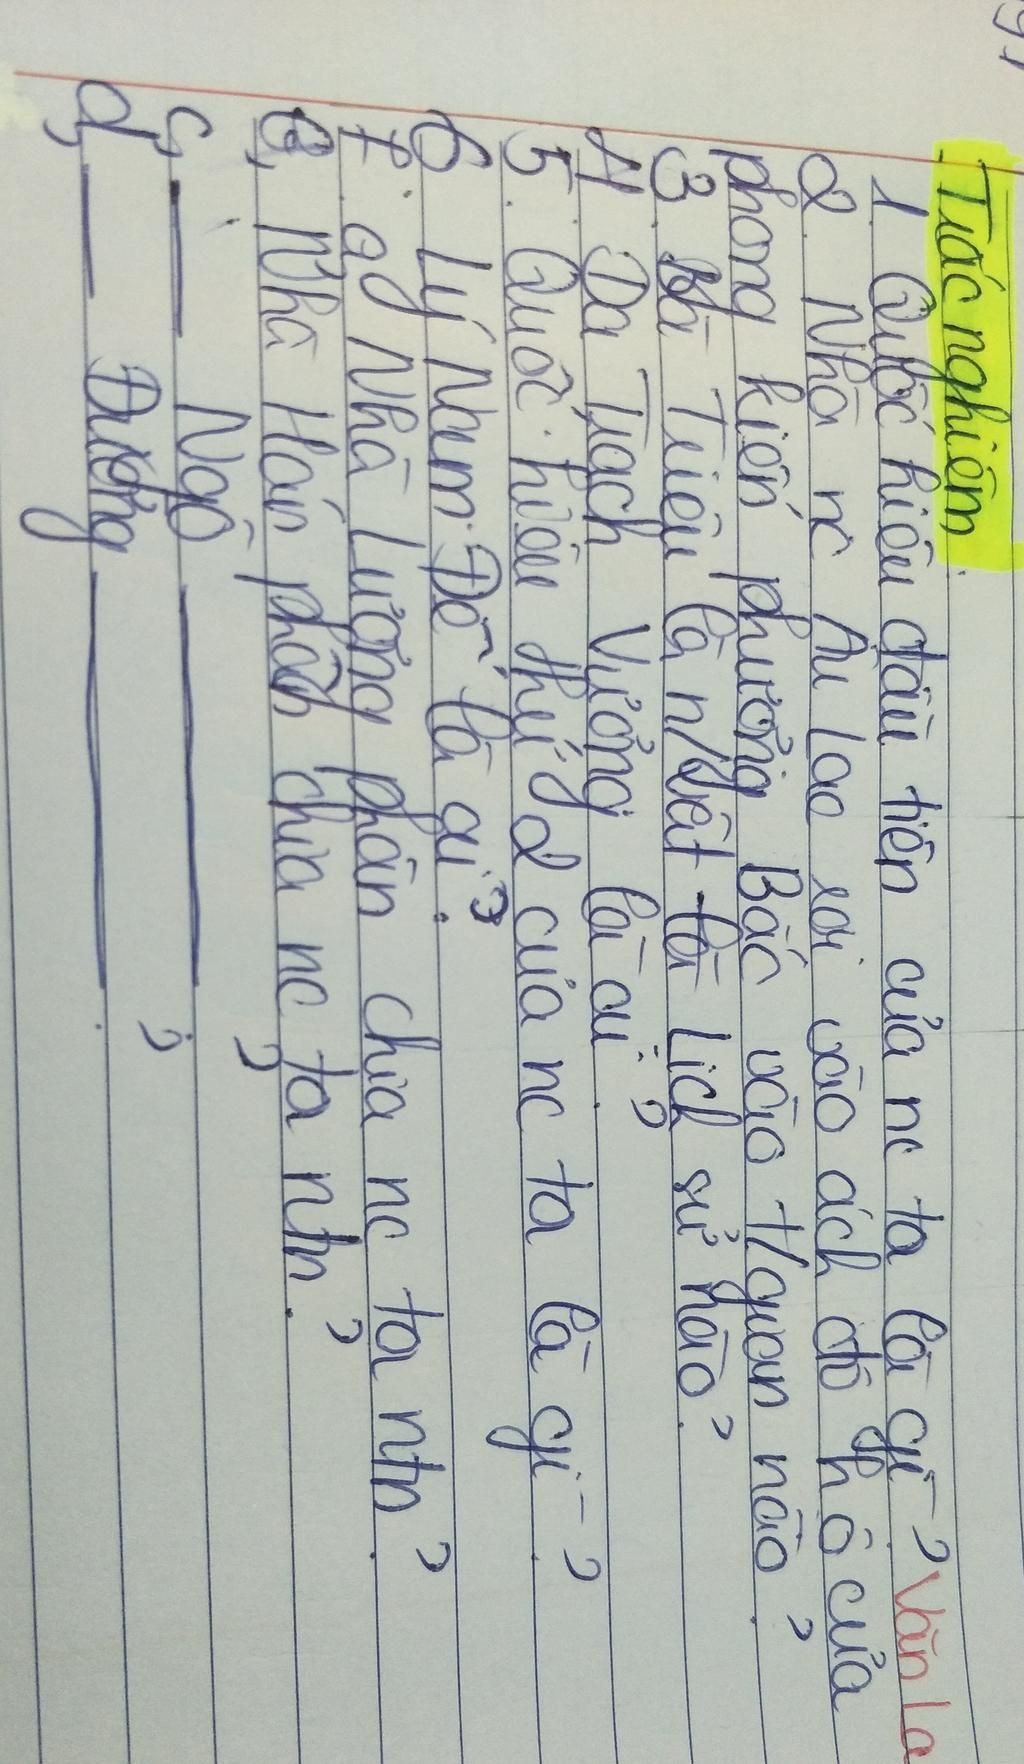 Trắc nghiệm
1 Quốc hiệu đầu tiên của nc ta là gì? Văn La
2. Nhà nc Âu lạc rơi vào ách đô hộ của
phong kiến phương Bắc vào t/gian nào?
3. Bà Triệu là n/vật là Lịch sử nào?
4. Dạ Trạch Vương là ai?
5. Quốc hiệu thứ 2 của nc ta là gì?
6 Lý Nam Đế là ai?
7. a, Nhà Lương phân chia nc ta ntn?
B, Nhà Hán phân chia nc ta ntn?
c, — Ngô — ?
d, — Đường —